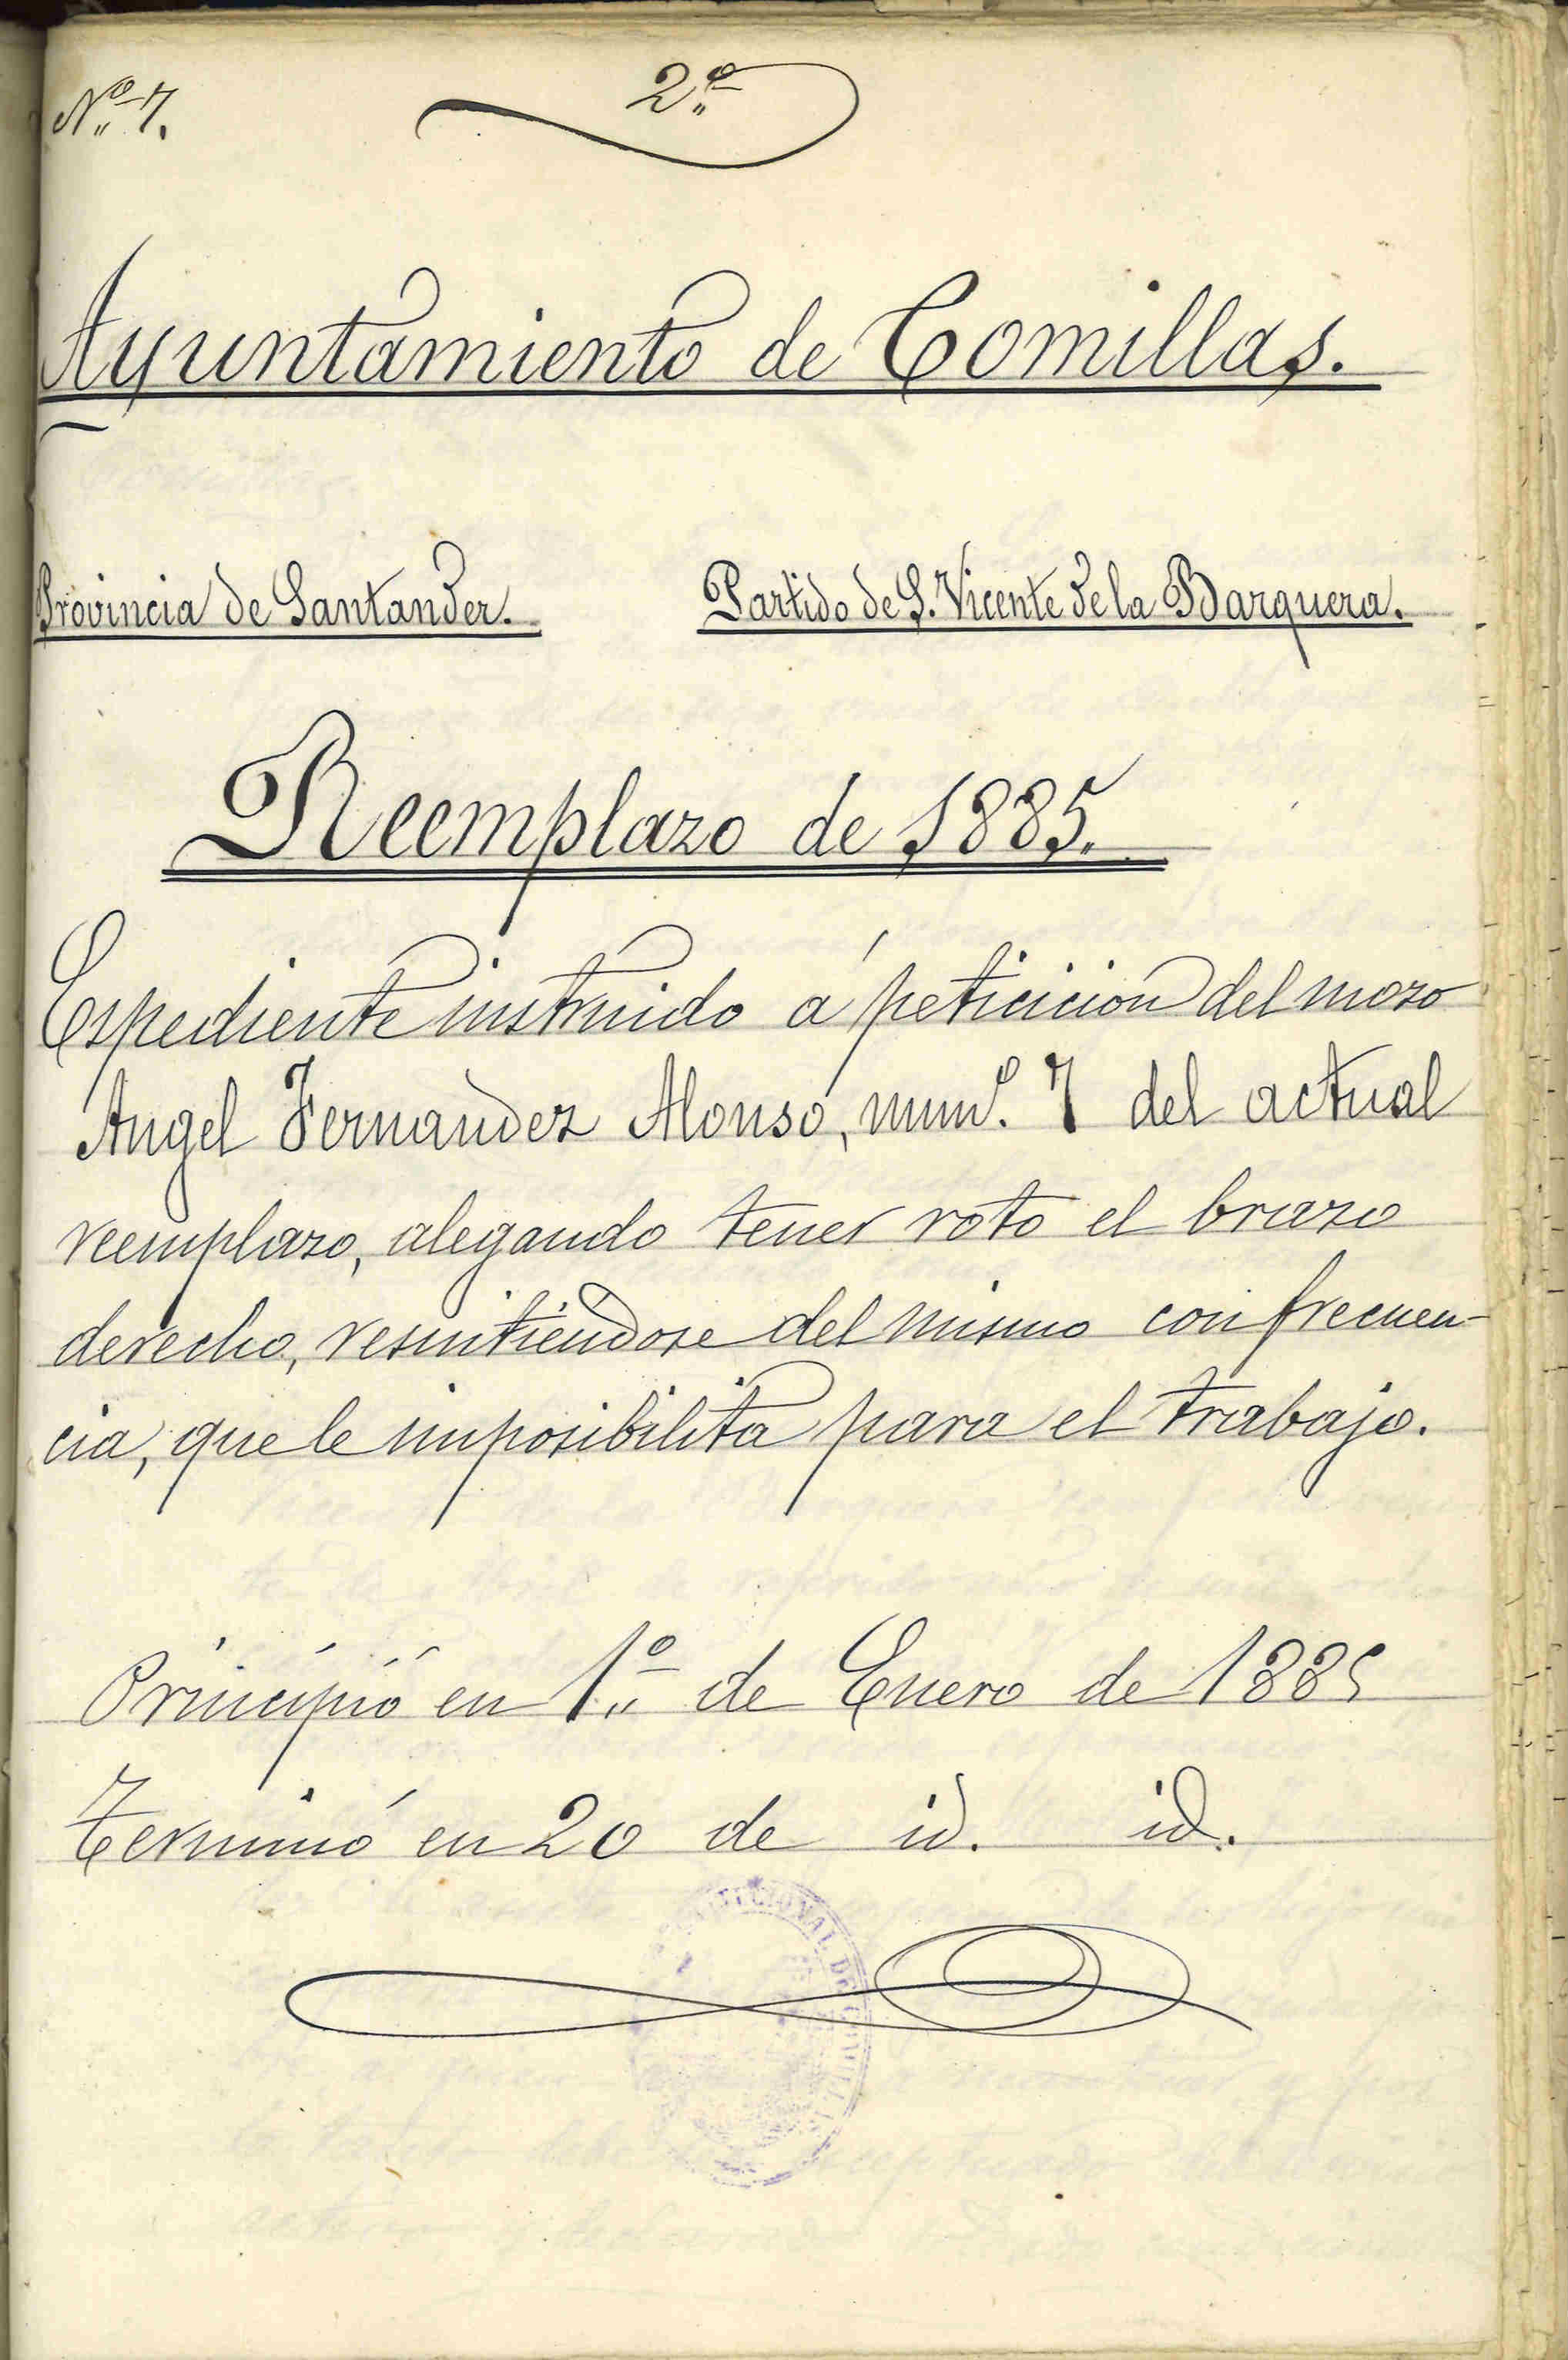 Nº 7.
2º
Ayuntamiento de Comillas.
Provincia de Santander.
Partido de S. Vicente de la Barquera.
Reemplazo de 1885.
Espediente instruido á peticicion del mozo
Angel Fernandez Alonso, numº. 7 del actual
reemplazo, alegando tener roto el brazo
derecho, resintiéndose del mismo con frecuen-
cia, que le imposibilita para el trabajo.
Principió en 1º de Enero de 1885
Terminó en 20 de id. id.